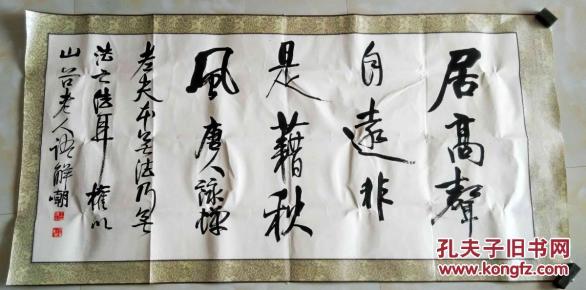 居高聲
自遠非
是藉秋
風 唐人詠蟬
老夫本無法乃無
法之法耳 權以
山谷老人語解嘲
孔夫子旧书网